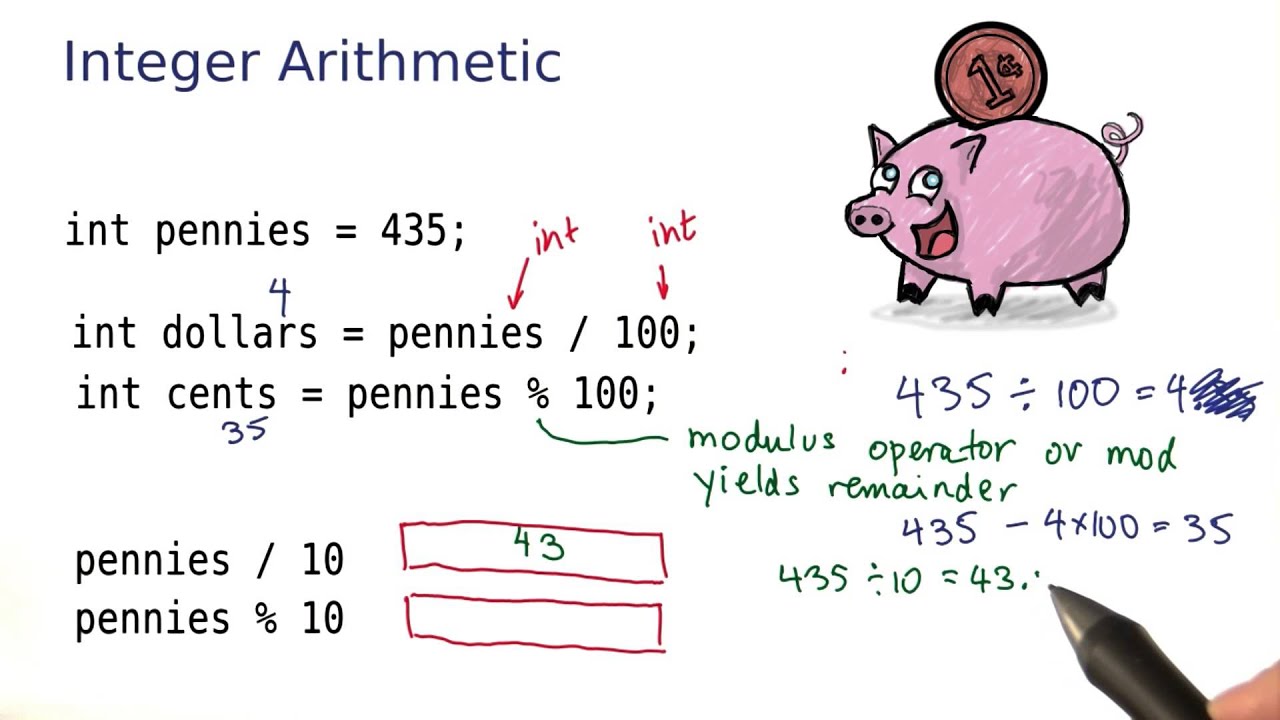 Integer Arithmetic
1¢
int pennies = 435;
int int
4
int dollars = pennies / 100;
int cents = pennies % 100;
35
435 ÷ 100 = 4
modulus operator or mod
yields remainder
435 - 4×100 = 35
pennies / 10 43
435 ÷ 10 = 43.
pennies % 10